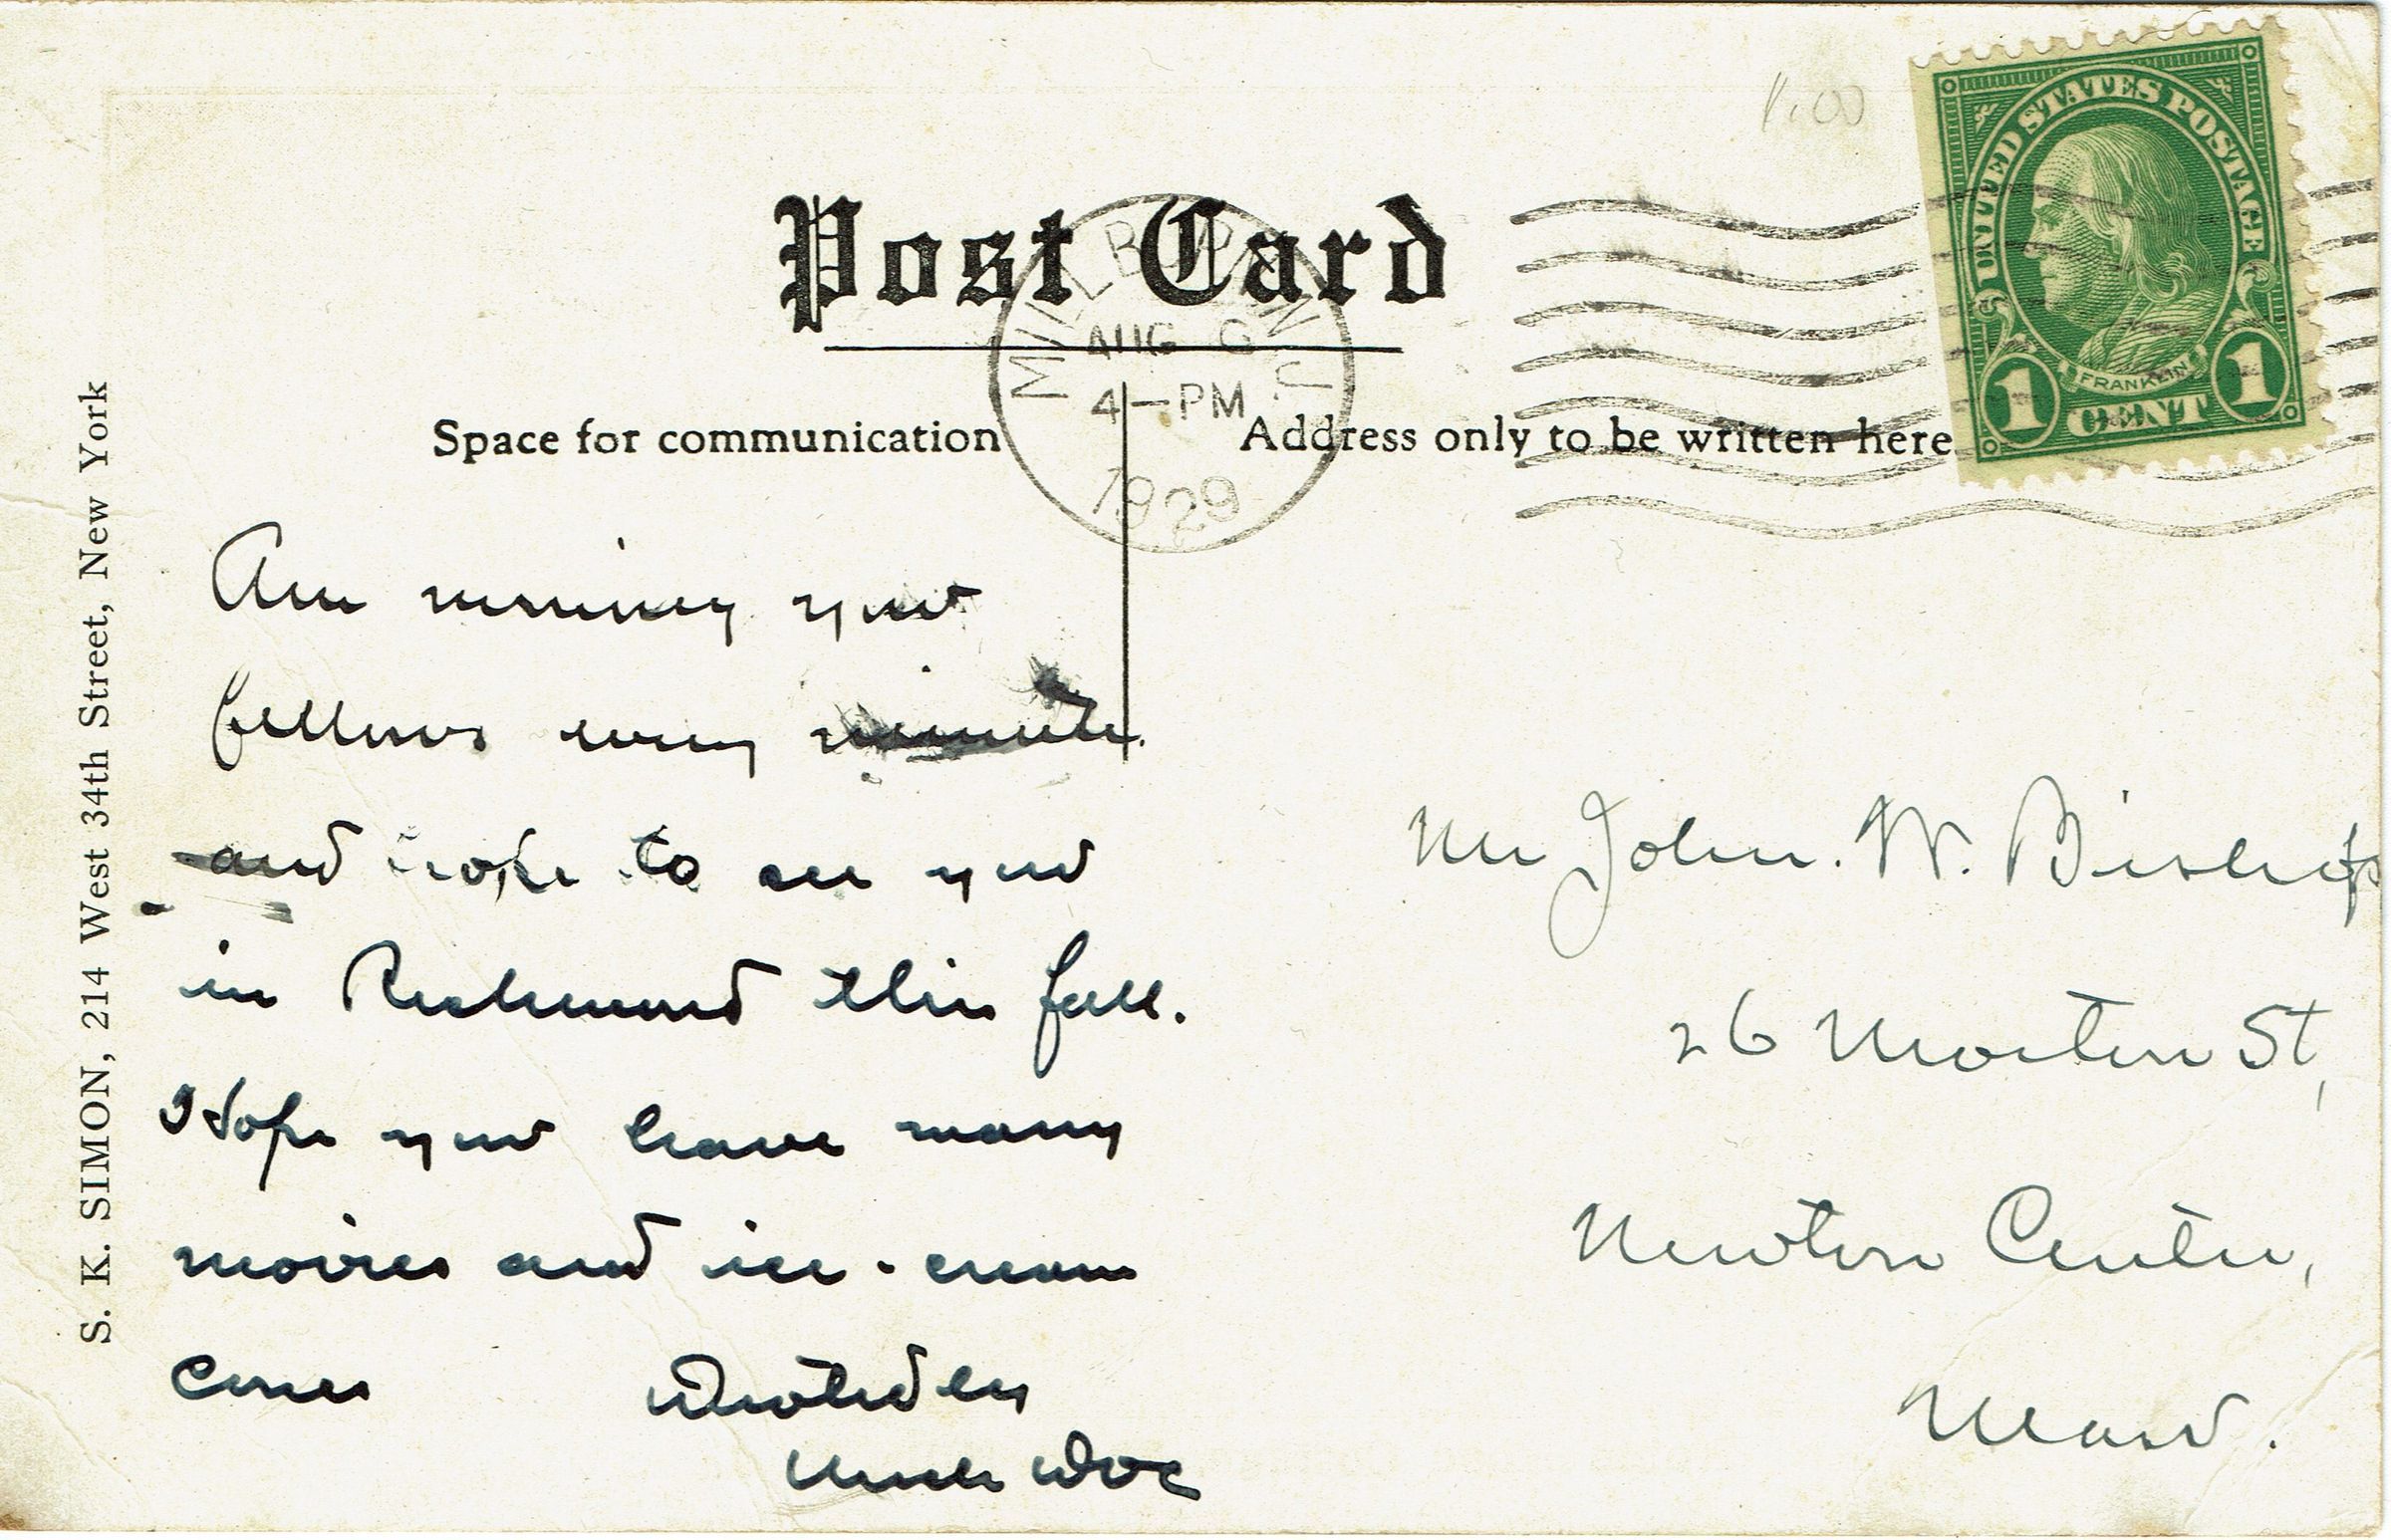 1.00
UNITED STATES POSTAGE
FRANKLIN
1 CENT 1
Post Card
AUG
4-PM
1929
Space for communication
Address only to be written here
S. K. SIMON, 214 West 34th Street, New York
Am missing you
fellows every minute.
and hope to see you
in Richmond this fall.
Hope you have many
movies and ice-cream
cones Devotedly
Uncle Doc
Mr John. W. Bishop
26 Morton St,
Newton Center,
Mass.